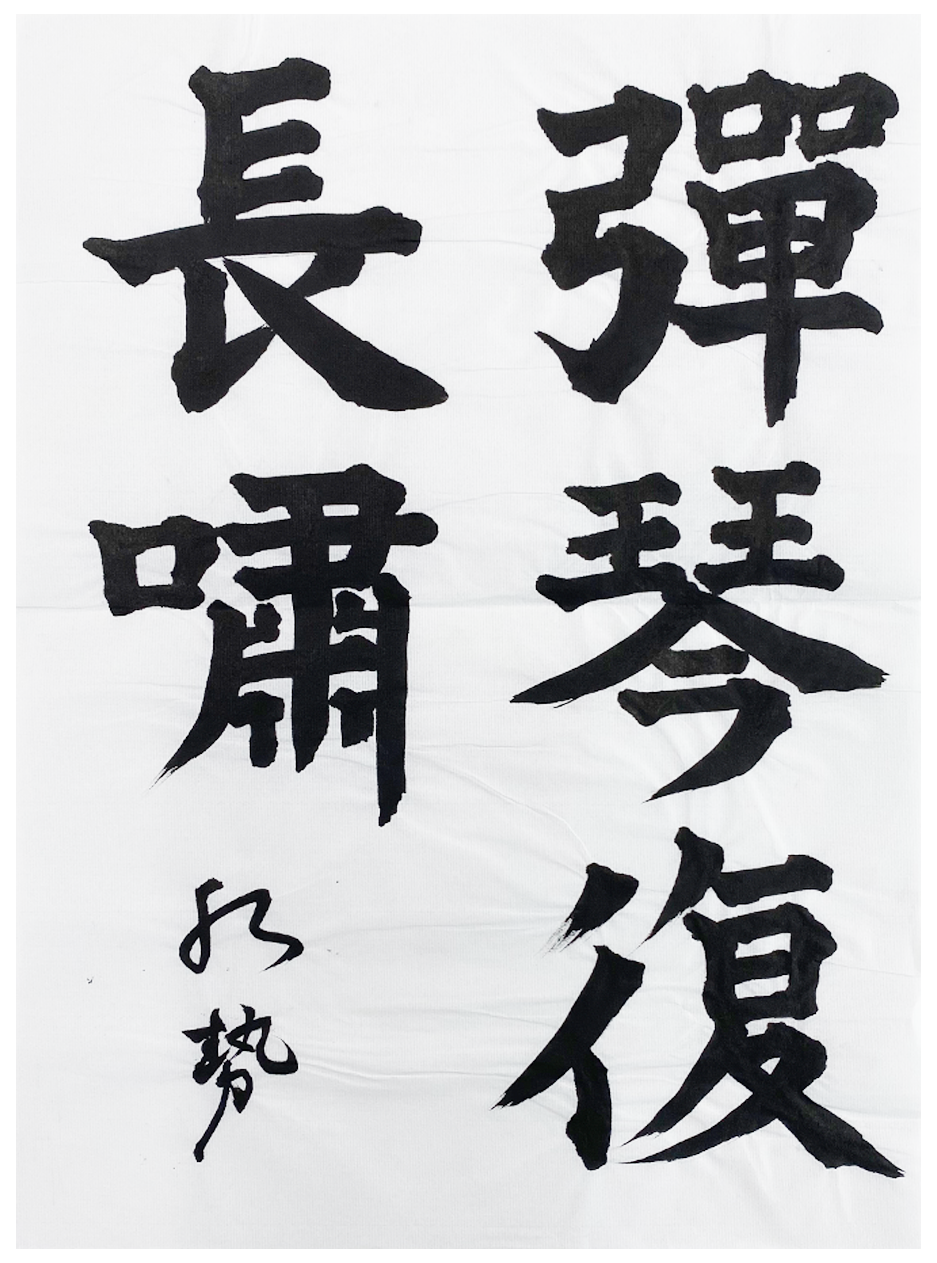 彈琴復
長嘯
勢